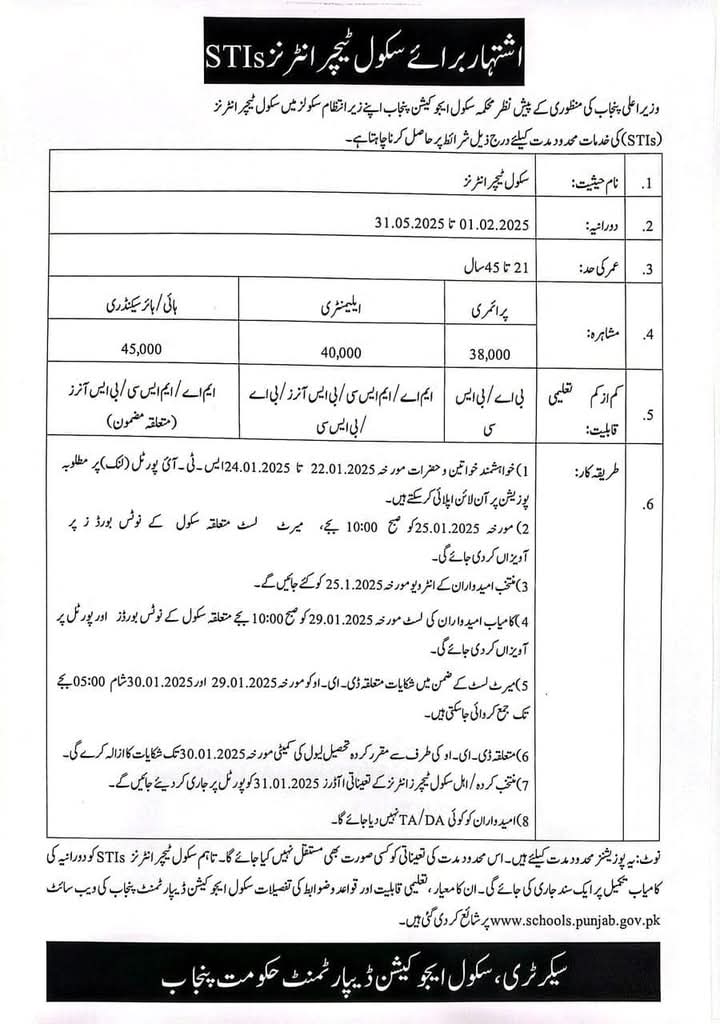 اشتہار برائے سکول ٹیچر انٹرنز STIs
وزیر اعلی پنجاب کی منظوری کے پیش نظر محکمہ سکول ایجوکیشن پنجاب اپنے زیر انتظام سکولز میں سکول ٹیچر انٹرنز
(STIs) کی خدمات محدود مدت کیلئے درج ذیل شرائط پر حاصل کرنا چاہتا ہے۔
1. نام حیثیت: سکول ٹیچر انٹرنز
2. دورانیہ: 01.02.2025 تا 31.05.2025
3. عمر کی حد: 21 تا 45 سال
4. مشاہرہ:
پرائمری ایلیمنٹری ہائی/ہائر سیکنڈری
38,000 40,000 45,000
5. کم از کم تعلیمی قابلیت:
بی اے/بی ایس سی
ایم اے/ایم ایس سی/بی ایس آنرز/بی اے
/بی ایس سی
ایم اے/ایم ایس سی/بی ایس آنرز
(متعلقہ مضمون)
6. طریقہ کار:
1) خواہشمند خواتین و حضرات مورخہ 22.01.2025 تا 24.01.2025 ایس-ٹی-آئی پورٹل (لنک) پر مطلوبہ
پوزیشن پر آن لائن اپلائی کر سکتے ہیں۔
2) مورخہ 25.01.2025 کو صبح 10:00 بجے، میرٹ لسٹ متعلقہ سکول کے نوٹس بورڈز پر
آویزاں کر دی جائے گی۔
3) منتخب امیدواران کے انٹرویو مورخہ 25.1.2025 کو کئے جائیں گے۔
4) کامیاب امیدواران کی لسٹ مورخہ 29.01.2025 کو صبح 10:00 بجے متعلقہ سکول کے نوٹس بورڈز اور پورٹل پر
آویزاں کر دی جائے گی۔
5) میرٹ لسٹ کے ضمن میں شکایات متعلقہ ڈی-ای-او کو مورخہ 29.01.2025 اور 30.01.2025 شام 05:00 بجے
تک جمع کروائی جا سکتی ہیں۔
6) متعلقہ ڈی-ای-او کی طرف سے مقرر کردہ تحصیل لیول کی کمیٹی مورخہ 30.01.2025 تک شکایات کا ازالہ کرے گی۔
7) منتخب کردہ/اہل سکول ٹیچرز انٹرنز کے تعیناتی آڈرز 31.01.2025 کو پورٹل پر جاری کر دیئے جائیں گے۔
8) امیدواران کو کوئی TA/DA نہیں دیا جائے گا۔
نوٹ: یہ پوزیشنز محدود مدت کیلئے ہیں۔ اس محدود مدت کی تعیناتی کو کسی صورت بھی مستقل نہیں کیا جائے گا۔ تاہم سکول ٹیچر انٹرنز STIs کو دورانیہ کی
کامیاب تکمیل پر ایک سند جاری کی جائے گی۔ ان کا معیار، تعلیمی قابلیت اور قواعد و ضوابط کی تفصیلات سکول ایجوکیشن ڈیپارٹمنٹ پنجاب کی ویب سائٹ
www.schools.punjab.gov.pk پر شائع کر دی گئی ہیں۔
سیکرٹری، سکول ایجوکیشن ڈیپارٹمنٹ حکومت پنجاب